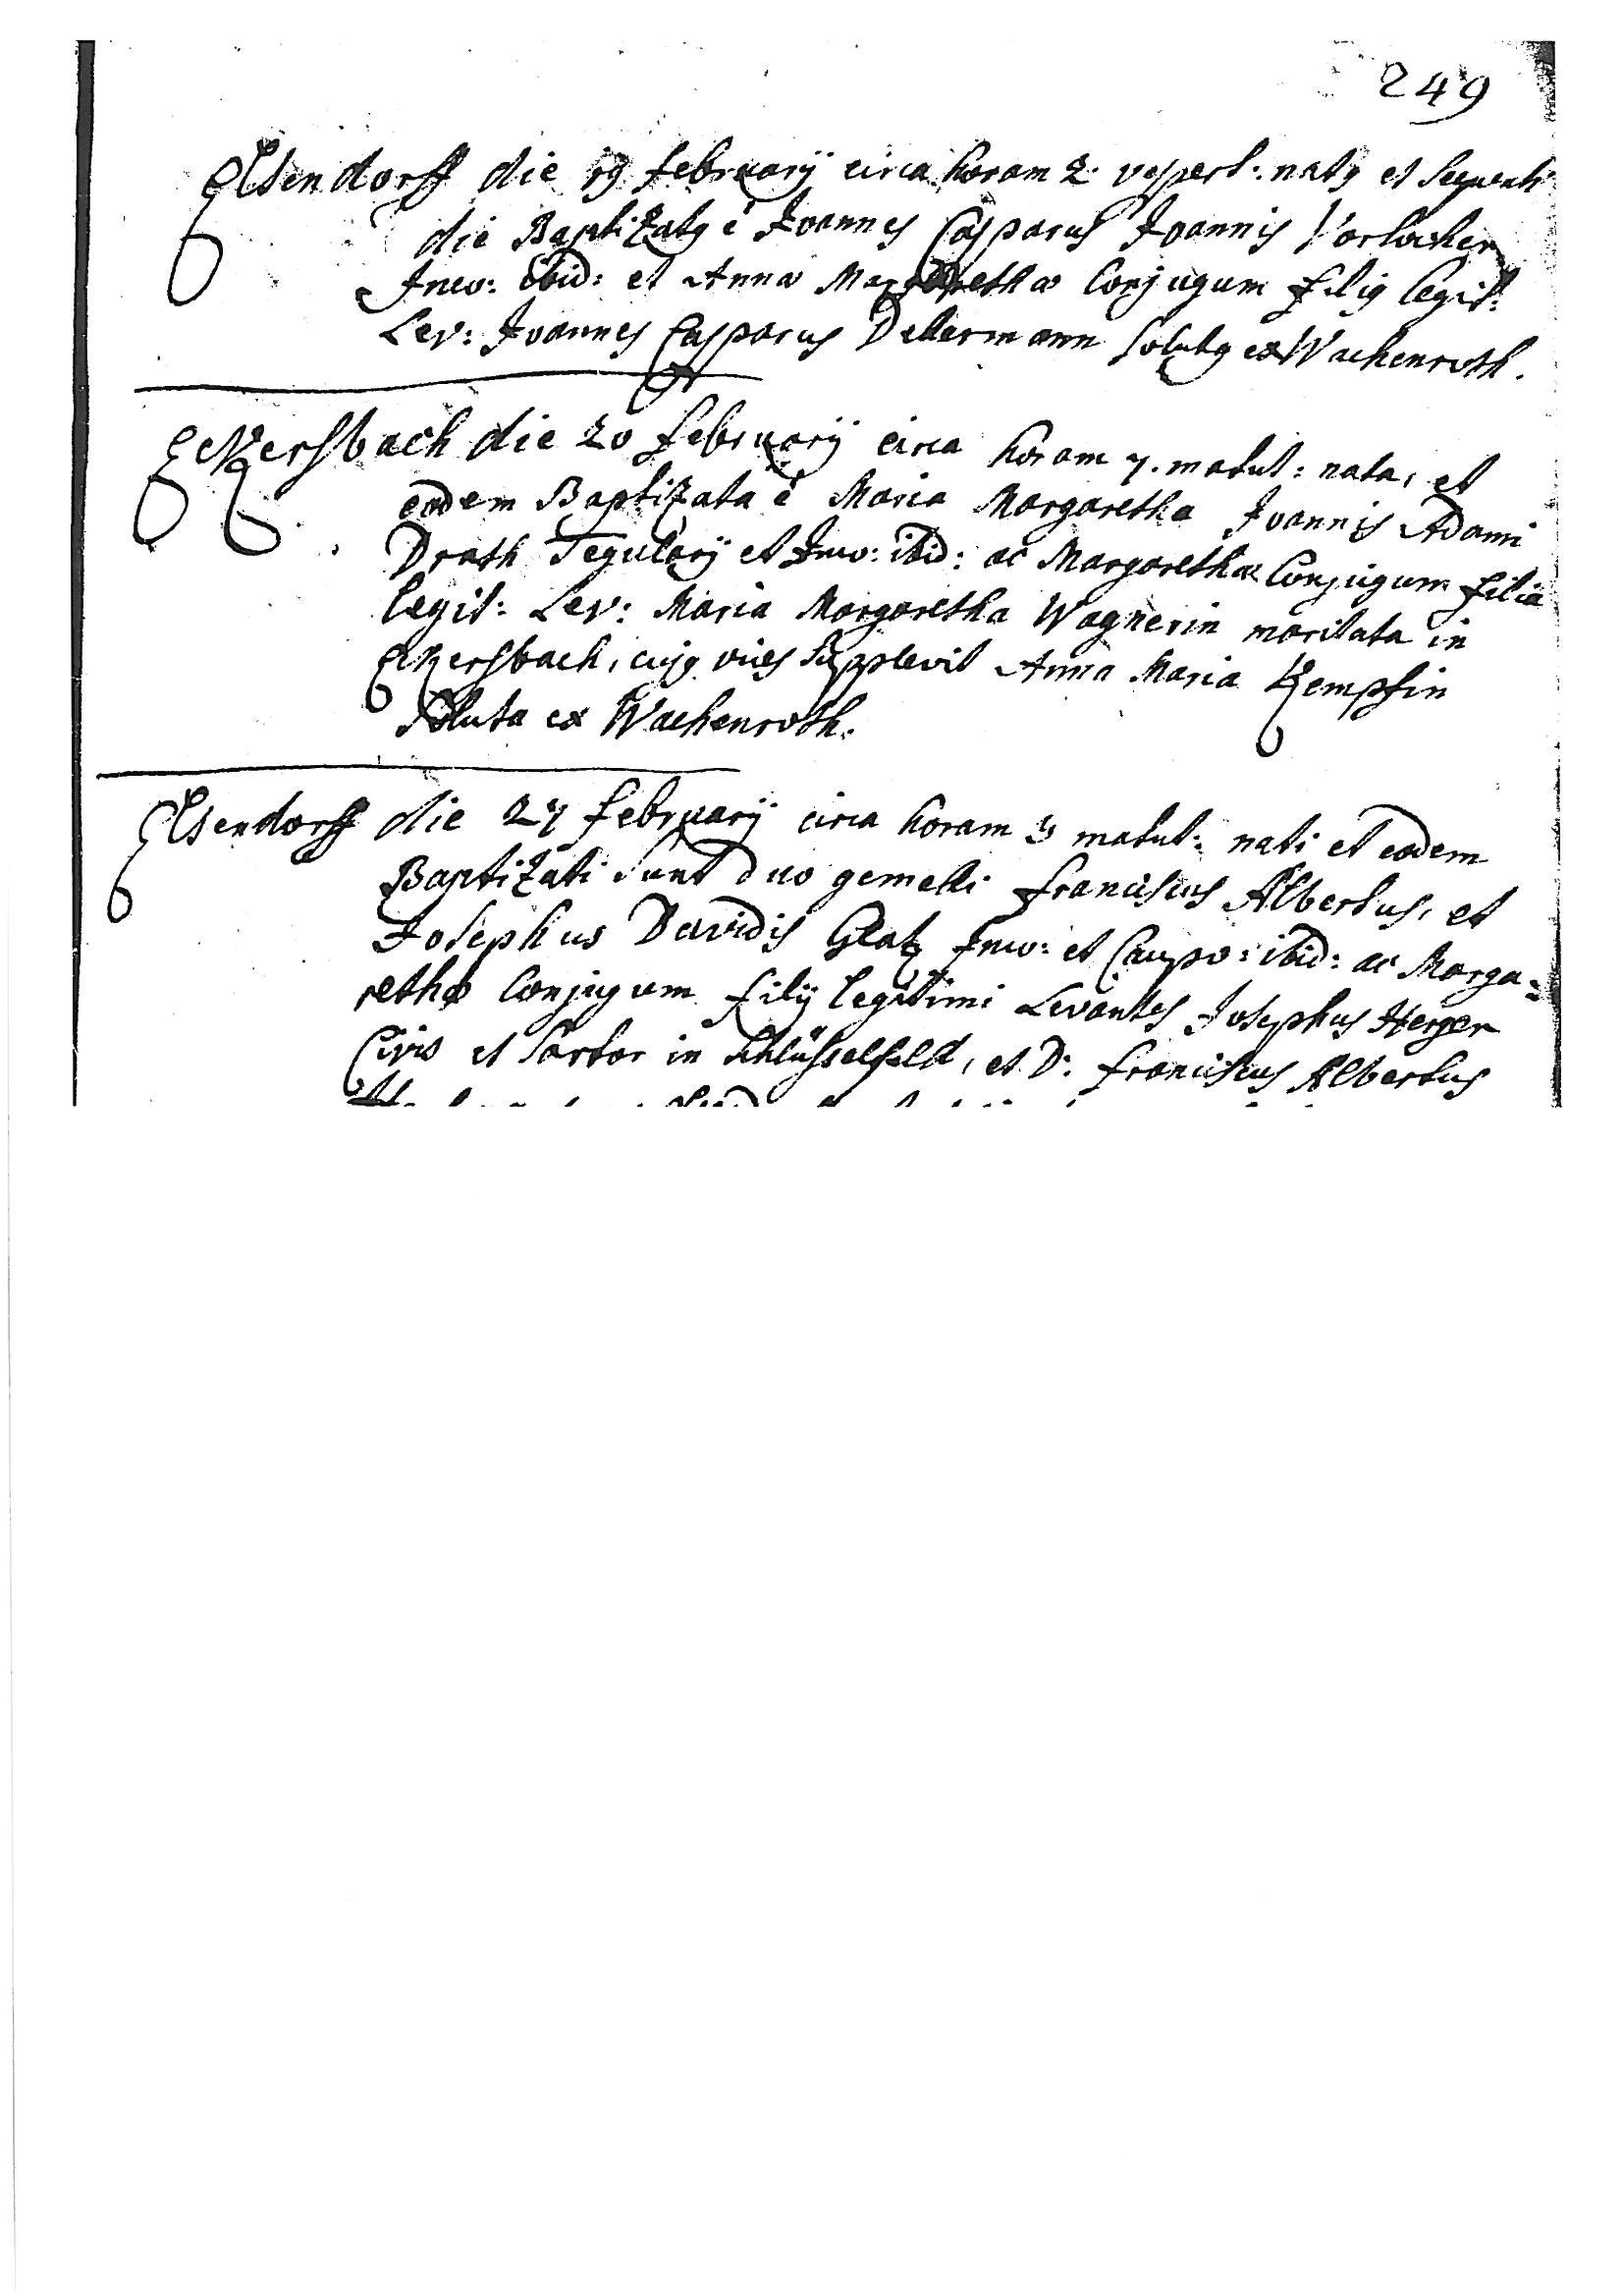 249
Elsendorff die 19 februarÿ circa horam 2. vespert: natq et sequenti
die Baptizatq ē Joannes Casparus Joannis Vorlocher
Inco: ibid: et Anna Margaretha Conjugum filiq legit:
Lev: Joannes Casparus Detterman solutq ex Wachenroth.
Eckersbach die 20 februarÿ circa horam 7. matut: nata, et
eodem Baptizata ē Maria Margaretha Joannis Adami
Drath Tegularÿ et Inco: ibid: ac Margarethæ Conjugum filia
legit: Lev: Maria Margaretha Wagnerin maritata in
Eckersbach, cujq vices supplevit Anna Maria Kempfin
soluta ex Wachenroth.
Elsendorff die 27 februarÿ circa horam 3 matut: nati et eodem
Baptizati sunt duo gemelli franciscus Albertus, et
Josephus Davidis Glatz Inco: et Caupo: ibid: ac Marga=
rethæ Conjugum filÿ legitimi Levantes Josephus Herger
Civis et Sartor in Schlüsselfeld, et D: franciscus Albertus